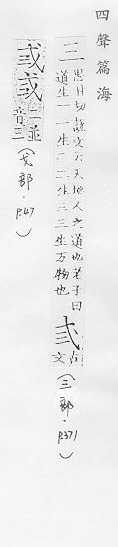 四聲篇海
三 思甘切說文云天地人之道也老子曰
道生一一生二二生三三生万物也
弎 古
文 (三部．P.371)
二並
音三 (戈部．